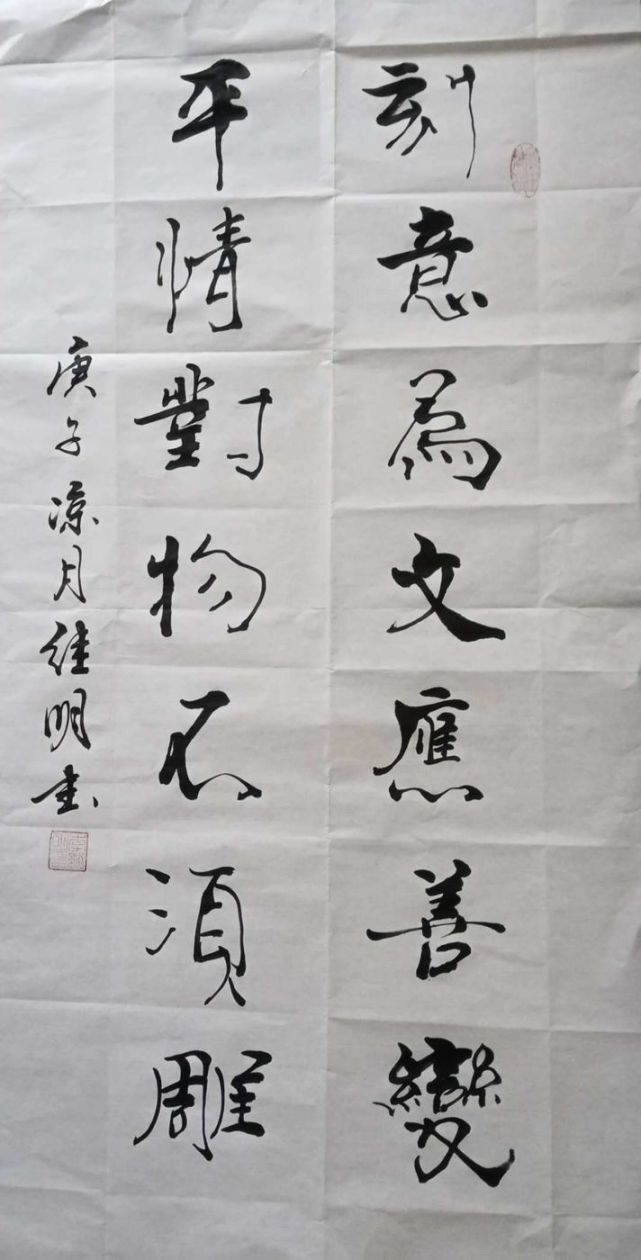 刻意為文應善變
平情對物不須雕
庚子凉月继明书